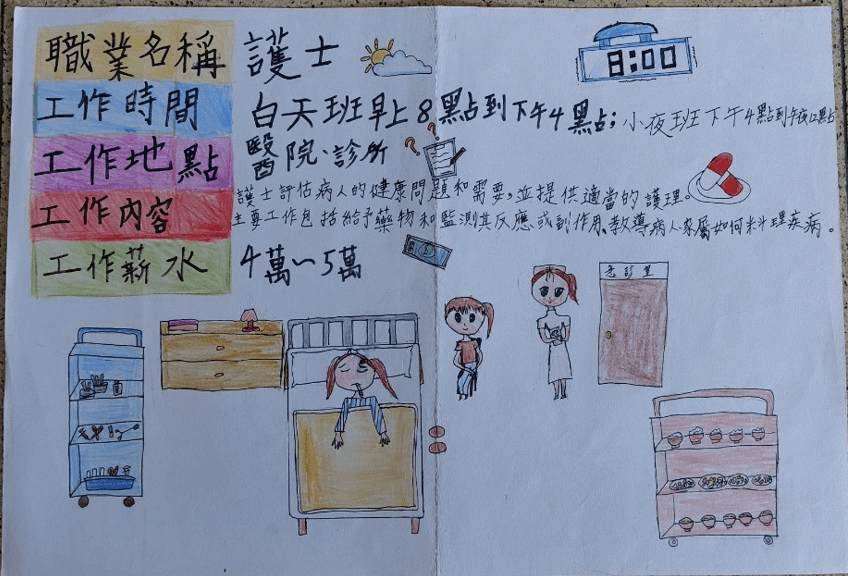 職業名稱 護士
8:00
工作時間 白天班早上8點到下午4點；小夜班下午4點到午夜12點
工作地點 醫院、診所
工作內容 護士評估病人的健康問題和需要，並提供適當的護理。
主要工作包括給予藥物和監測其反應或副作用、教導病人家屬如何料理疾病。
工作薪水 4萬～5萬
急診室